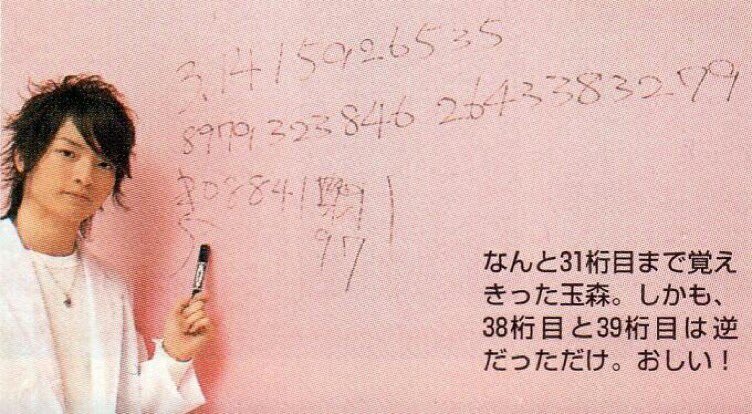 3.14159265 35
8979323846 2643383279
088419
5
97
なんと31桁目まで覚え
きった玉森。しかも、
38桁目と39桁目は逆
だっただけ。おしい!